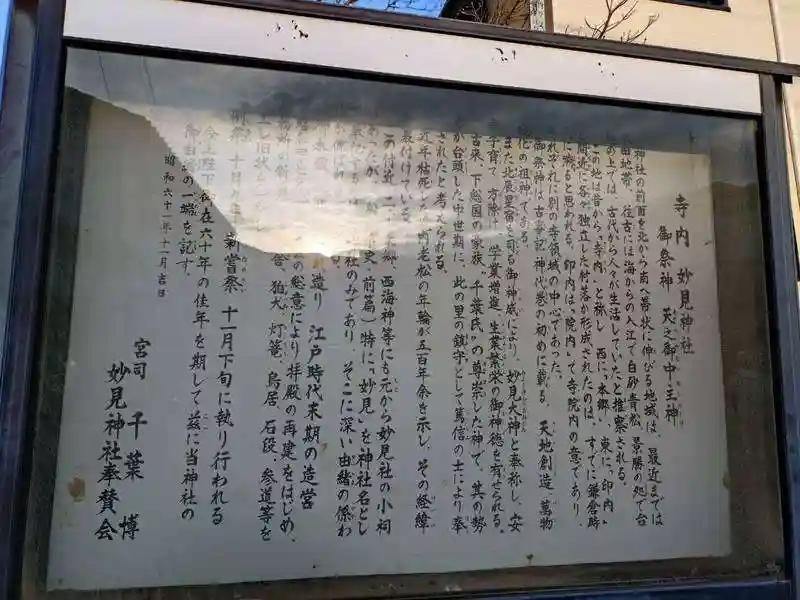 寺内 妙見神社
御祭神 天之御中主神
神社の前面を北から南へ帯状に伸びる地域は、最近までは
田地帯、往古には海からの入江で白砂青松、景勝の処で台
の上では、古代から人々が生活していたと推察される。
この地は昔から「寺内」と称し、西に「本郷」東に「印内」
間近に各々独立した村落が形成されたのは、すでに鎌倉時
に溯ると思われる。印内は「院内」で寺院内の意であり、
それぞれに別の寺領域の中心であった。
御祭神は古事記神代巻の初めに載る、天地創造、萬物
化の祖神である。
また北辰星宿を司る御神威により、妙見大神と奉称し、安
子育て、方除け、学業増進、生業繁栄の御神徳を有せられる。
古来、下総国の豪族「千葉氏」の尊崇した神で、其の勢
が台頭した中世期に、此の里の鎮守として篤信の士により奉
されたと考えられる。
近年枯死した御老松の年輪が五百年余を示し、その経緯
裏付けている。
この付近
西海神等にも元から妙見社の小祠
あったが
史、前篇)特に「妙見」を神社名とし
社のみであり、そこに深い由緒の係わ
造り 江戸時代末期の造営
の総意により拝殿の再建をはじめ、
舎、狛犬、灯篭、鳥居、石段、参道等を
例祭 十月
新嘗祭 十一月下旬に執り行われる
今上陛下御在位六十年の佳年を期して茲に当神社の
御由緒の一端を記す。
昭和六十一年十一月吉日
宮司 千葉 博
妙見神社奉賛会